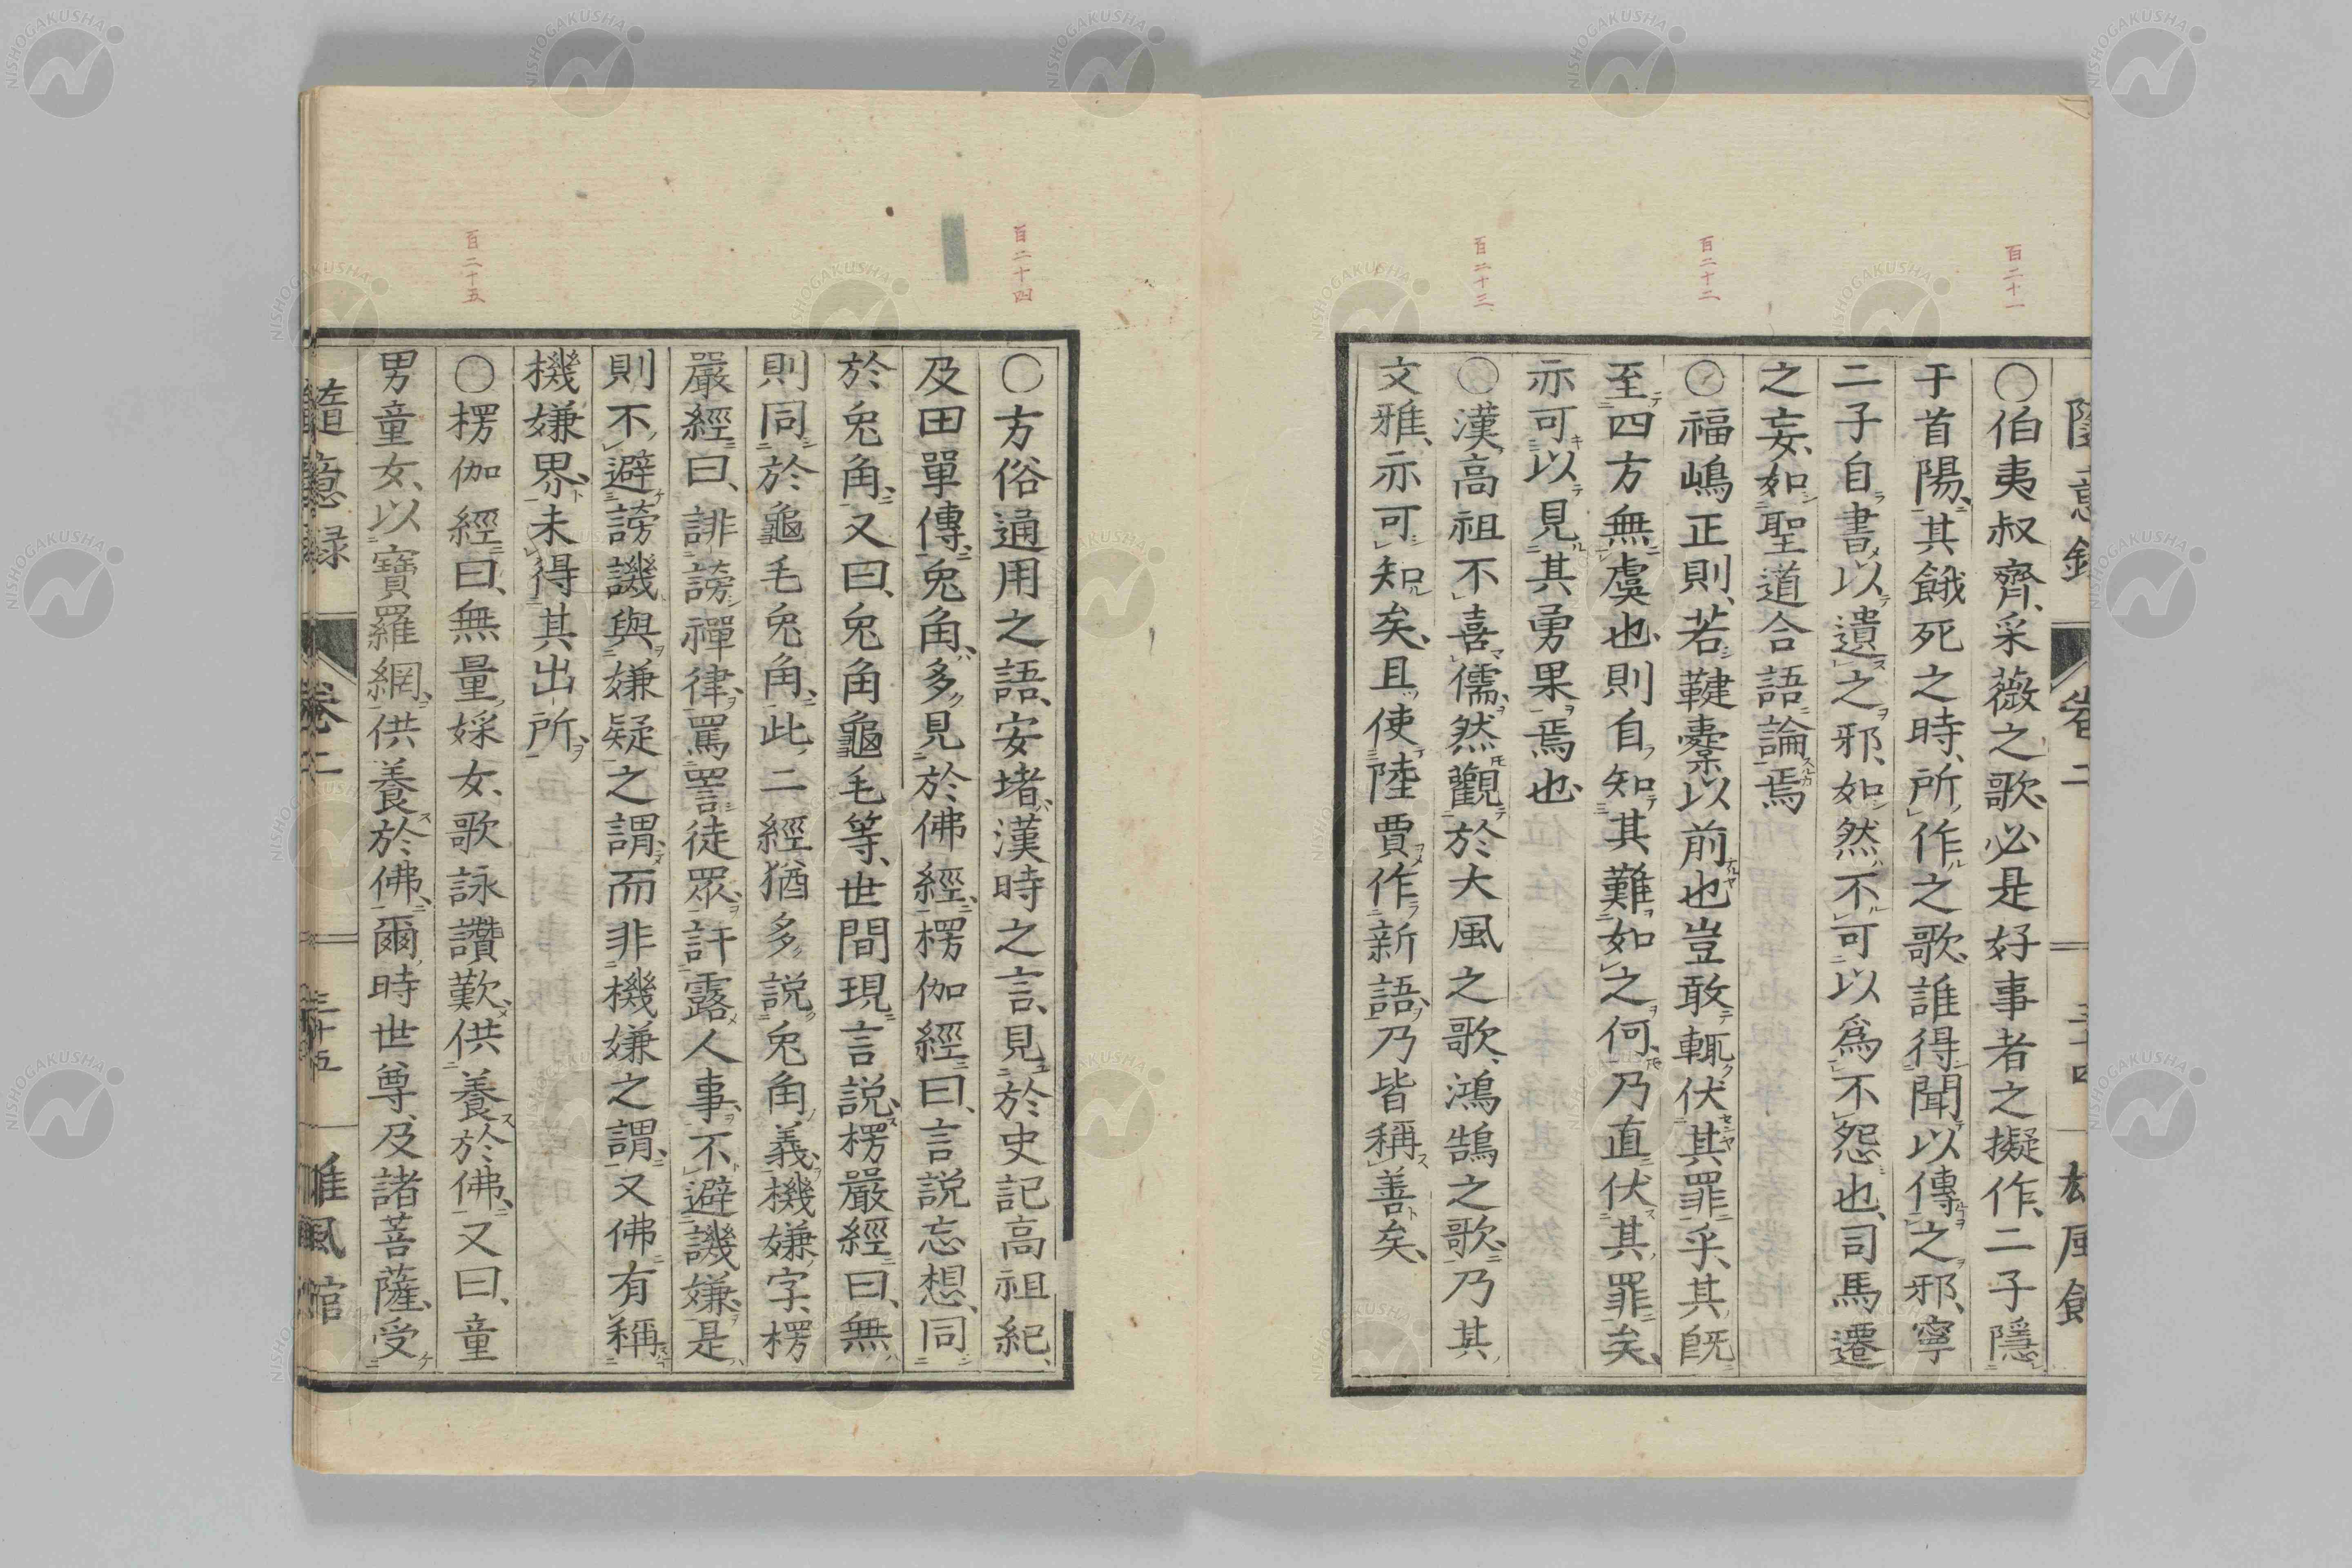 百二十一
百二十二
百二十三
〇伯夷叔齊、采薇之歌、必是好事者之擬作、二子隱
于首陽、其餓死之時、所作之歌、誰得聞以傳之邪、寧
二子自書以遺之邪、如然、不可以為不怨也、司馬遷
之妄、如聖道合語論焉
〇福嶋正則、若鞬櫜以前也豈敢輒伏其罪乎、其既
至四方無虞也、則自知其難如之何、乃直伏其罪矣、
亦可以見其勇果焉也
〇漢高祖不喜儒、然觀於大風之歌、鴻鵠之歌、乃其
文雅、亦可知矣、且使陸賈作新語、乃皆稱善矣、
百二十四
百二十五
〇方俗通用之語、安堵、漢時之言、見於史記高祖紀、
及田單傳、兔角、多見於佛經、楞伽經曰、言說忘想、同
於兔角、又曰、兔角龜毛等、世間現言說、楞嚴經曰、無
則同於龜毛兔角、此二經猶多說兔角義、機嫌字、楞
嚴經曰、誹謗禪律、罵詈徒眾、訐露人事、不避譏嫌、是
則不避謗譏與嫌疑之謂、而非機嫌之謂、又佛有稱
機嫌界、未得其出所、
〇楞伽經曰、無量婇女、歌詠讚歎、供養於佛、又曰、童
男童女、以寶羅網、供養於佛、爾時世尊、及諸菩薩、受
隨意錄 卷二 三十五 雄風館